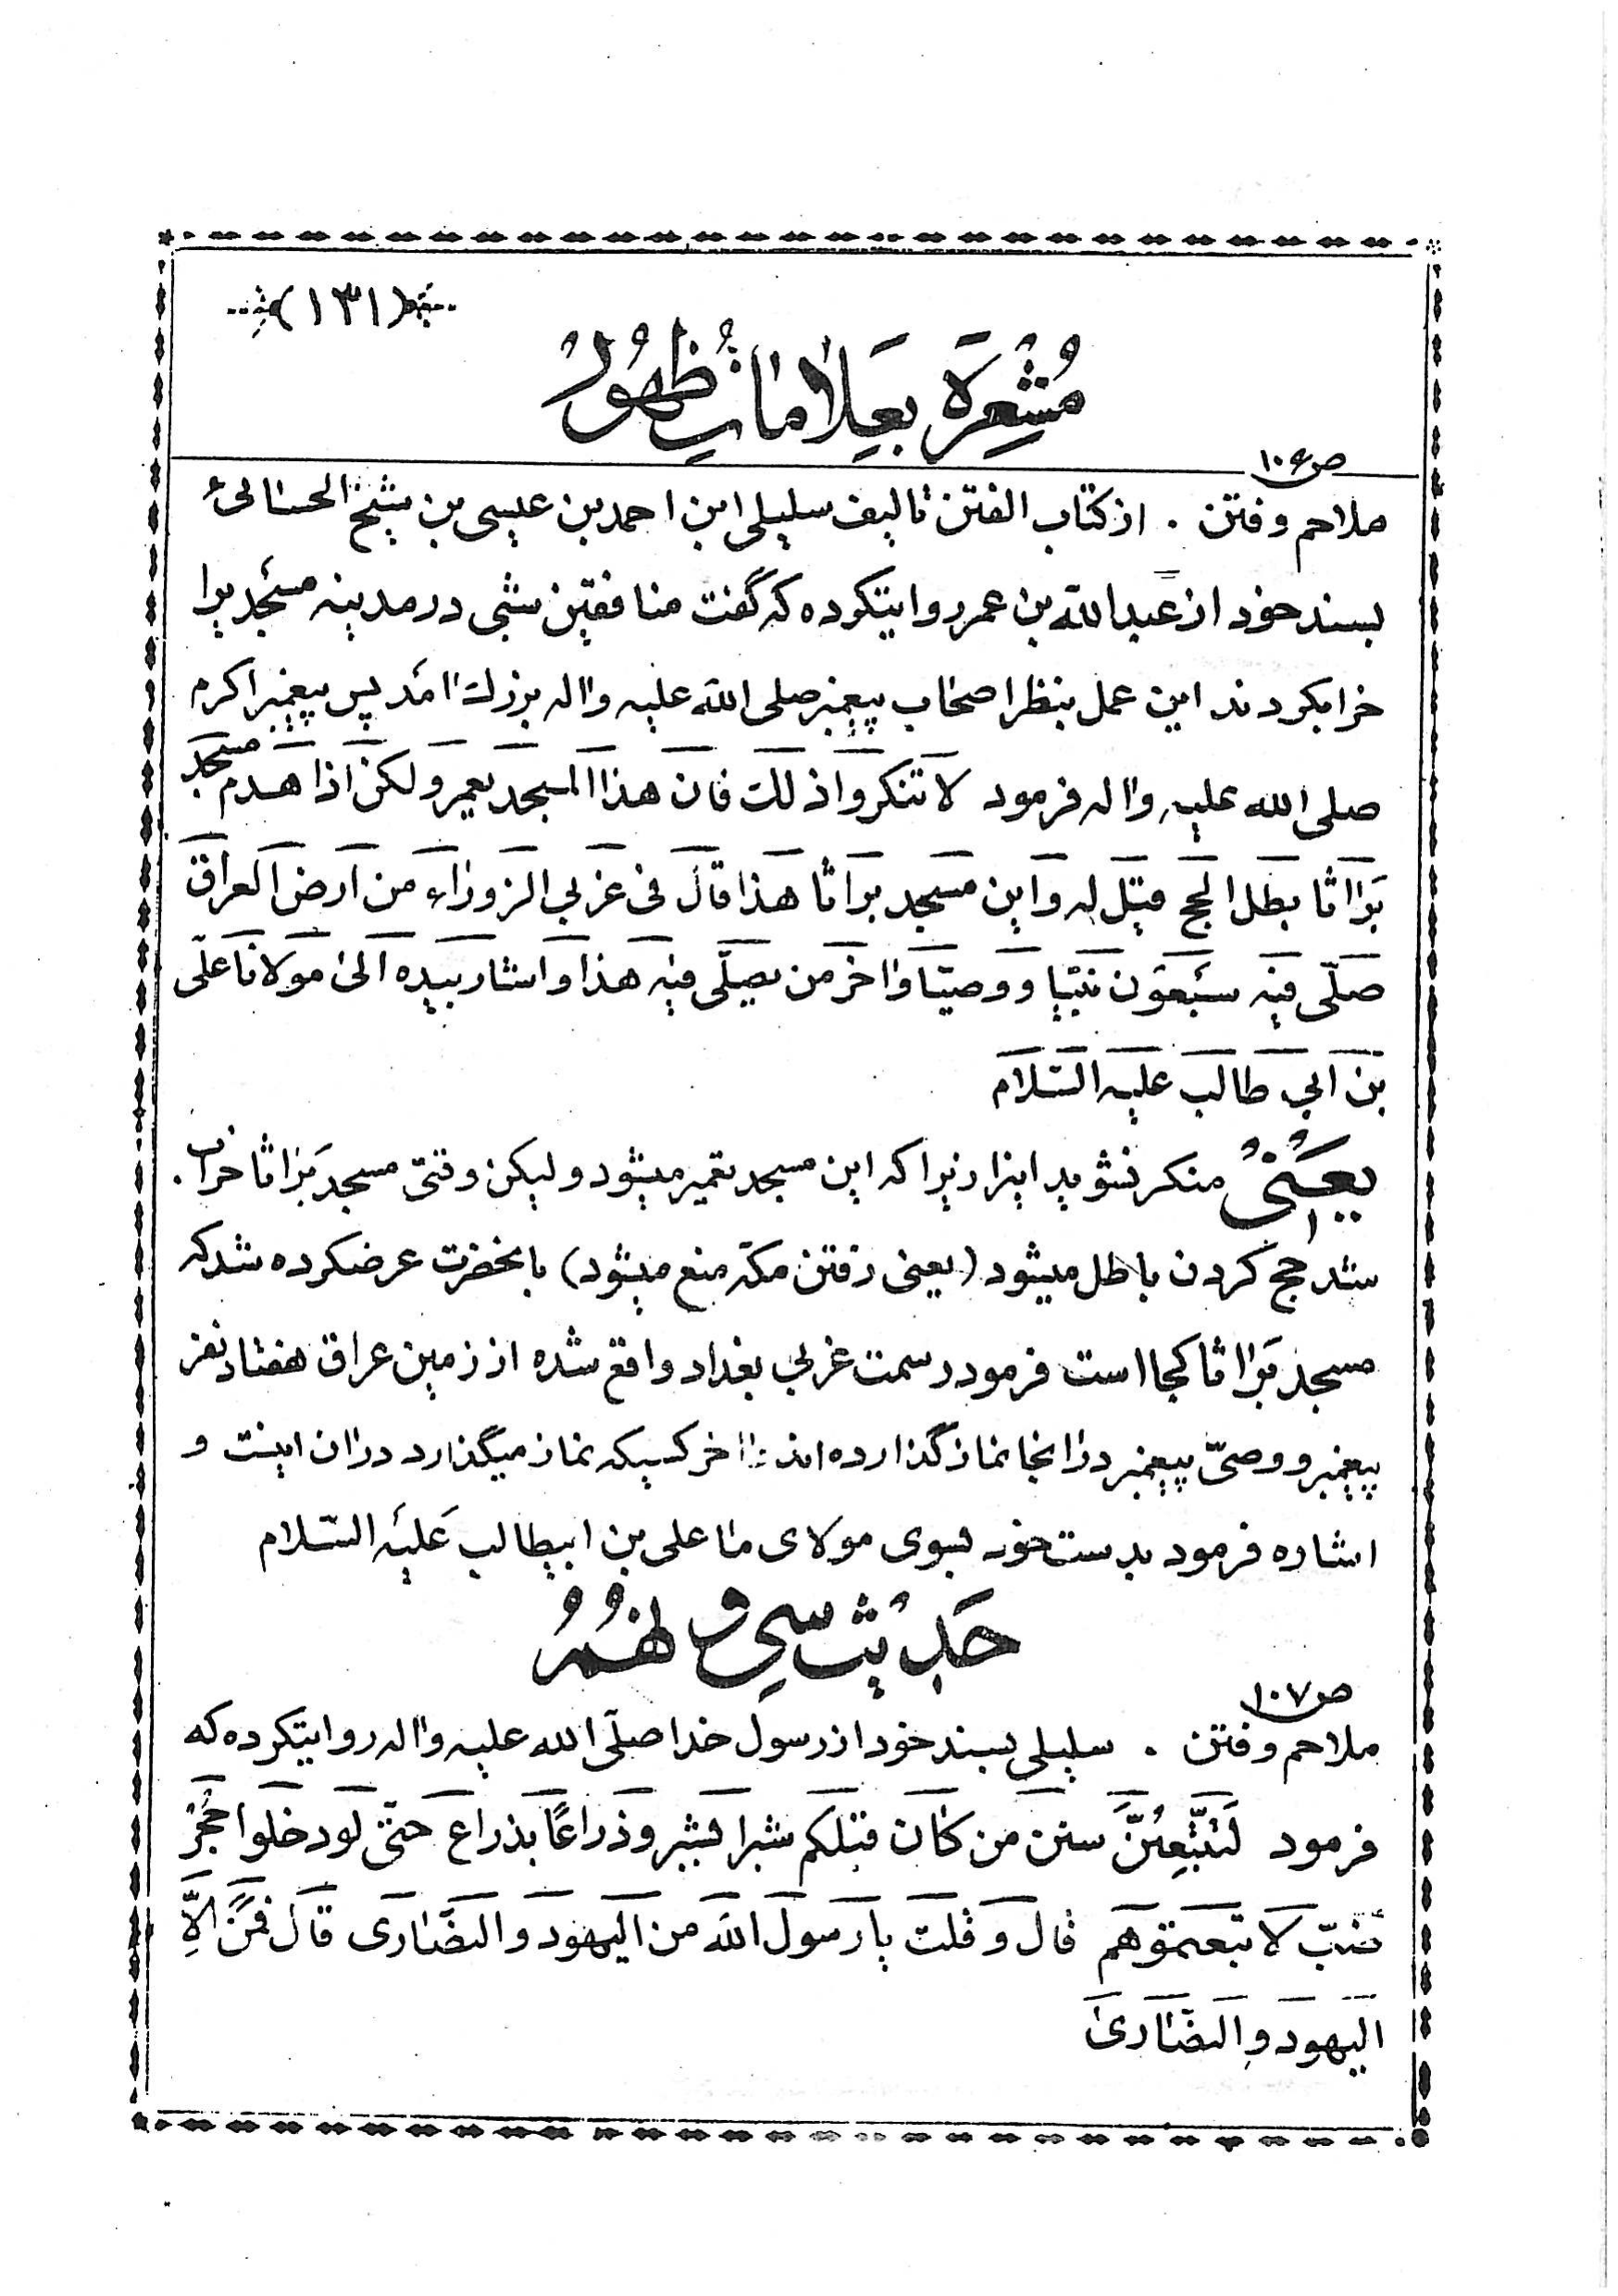 (۱۳۱)
مُشْعِرَه بِعَلاماتِ ظُهُورْ
ص۱۰۶
ملاحم و فتن . از کتاب الفتن تالیف سلیلی ابن احمد بن عیسی بن شیخ الحسائی
بسند خود از عبدالله بن عمر روایتکرده که گفت منافقین شبی در مدینه مسجد یرا
خرابکردند این عمل بنظر اصحاب پیغمبر صلی الله علیه واله بزرك امد پس پیغمبر اکرم
صلی الله علیه واله فرمود لا تنکروا ذلك فان هذا المسجد یعمر ولکن اذا هدم مسجد
بَراثا بطل الحج قیل له واین مسجد براثا هذا قال فی غربی الزوراء من ارض العراق
صلّی فیه سَبعُون نبیّا ووصیّا واخر من یصلّی فیه هذا واشار بیده الی مولانا علی
بن ابی طالب علیه السّلام
یعنی منکر نشوید اینرا زیرا که این مسجد تعمیر میشود ولیکن وقتی مسجد بَراثا خراب
شد حج کردن باطل میشود (یعنی رفتن مکه منع میشود) بانحضرت عرضکرده شد که
مسجد بَراثا کجا است فرمود در سمت غربی بغداد واقع شده از زمین عراق هفتاد نفر
پیغمبر و وصیّ پیغمبر در انجا نماز گذارده اند اخر کسیکه نماز میگذارد در ان اینست و
اشاره فرمود بدست خود بسوی مولای ما علی بن ابیطالب عَلیَه السّلام
حَدیث سی و نهُم
ص۱۰۷
ملاحم و فتن . سلیلی بسند خود از رسول خدا صلّی الله علیه واله روایتکرده که
فرمود لَتَتَّبِعُنَّ سنن من کان قبلکم شبرا بشبر وذراعًا بذراع حتّی لو دخلوا حُجْرَ
ضبّ لا تبعتموهم قال وقلت یا رسول الله من الیهود والنصّاری قال فمَن اِلاَّ
الیهود والنصّاری